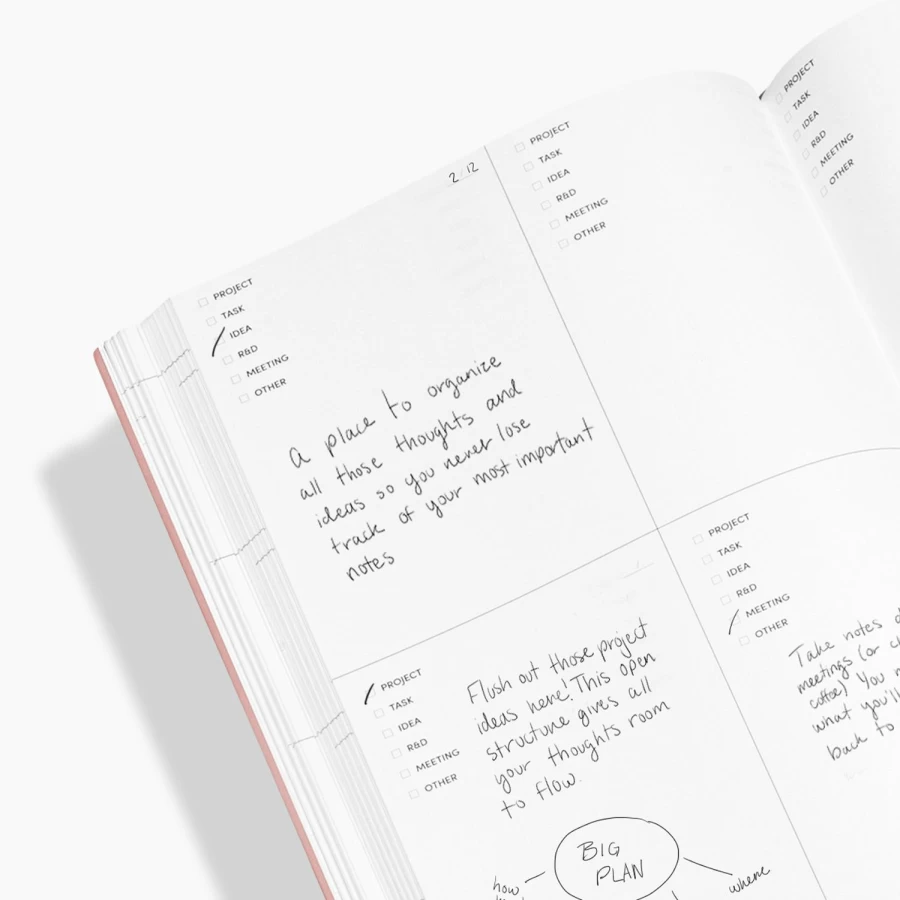 2/12
PROJECT
TASK
IDEA
R&D
MEETING
OTHER
a place to organize
all those thoughts and
ideas so you never lose
track of your most important
notes
PROJECT
TASK
IDEA
R&D
MEETING
OTHER
PROJECT
TASK
IDEA
R&D
MEETING
OTHER
Flush out those project
ideas here! This open
structure gives all
your thoughts room
to flow.
BIG
PLAN
how
where
PROJECT
TASK
IDEA
R&D
MEETING
OTHER
Take notes
meetings (or
coffee) You
what you'll
back to
PROJECT
TASK
IDEA
R&D
MEETING
OTHER